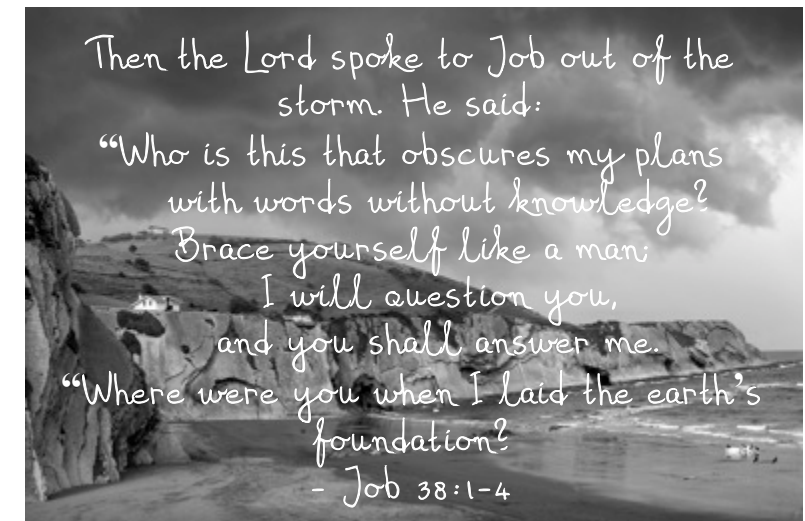 Then the Lord spoke to Job out of the
storm. He said:
“Who is this that obscures my plans
with words without knowledge?
Brace yourself like a man;
I will question you,
and you shall answer me.
“Where were you when I laid the earth’s
foundation?
- Job 38:1-4